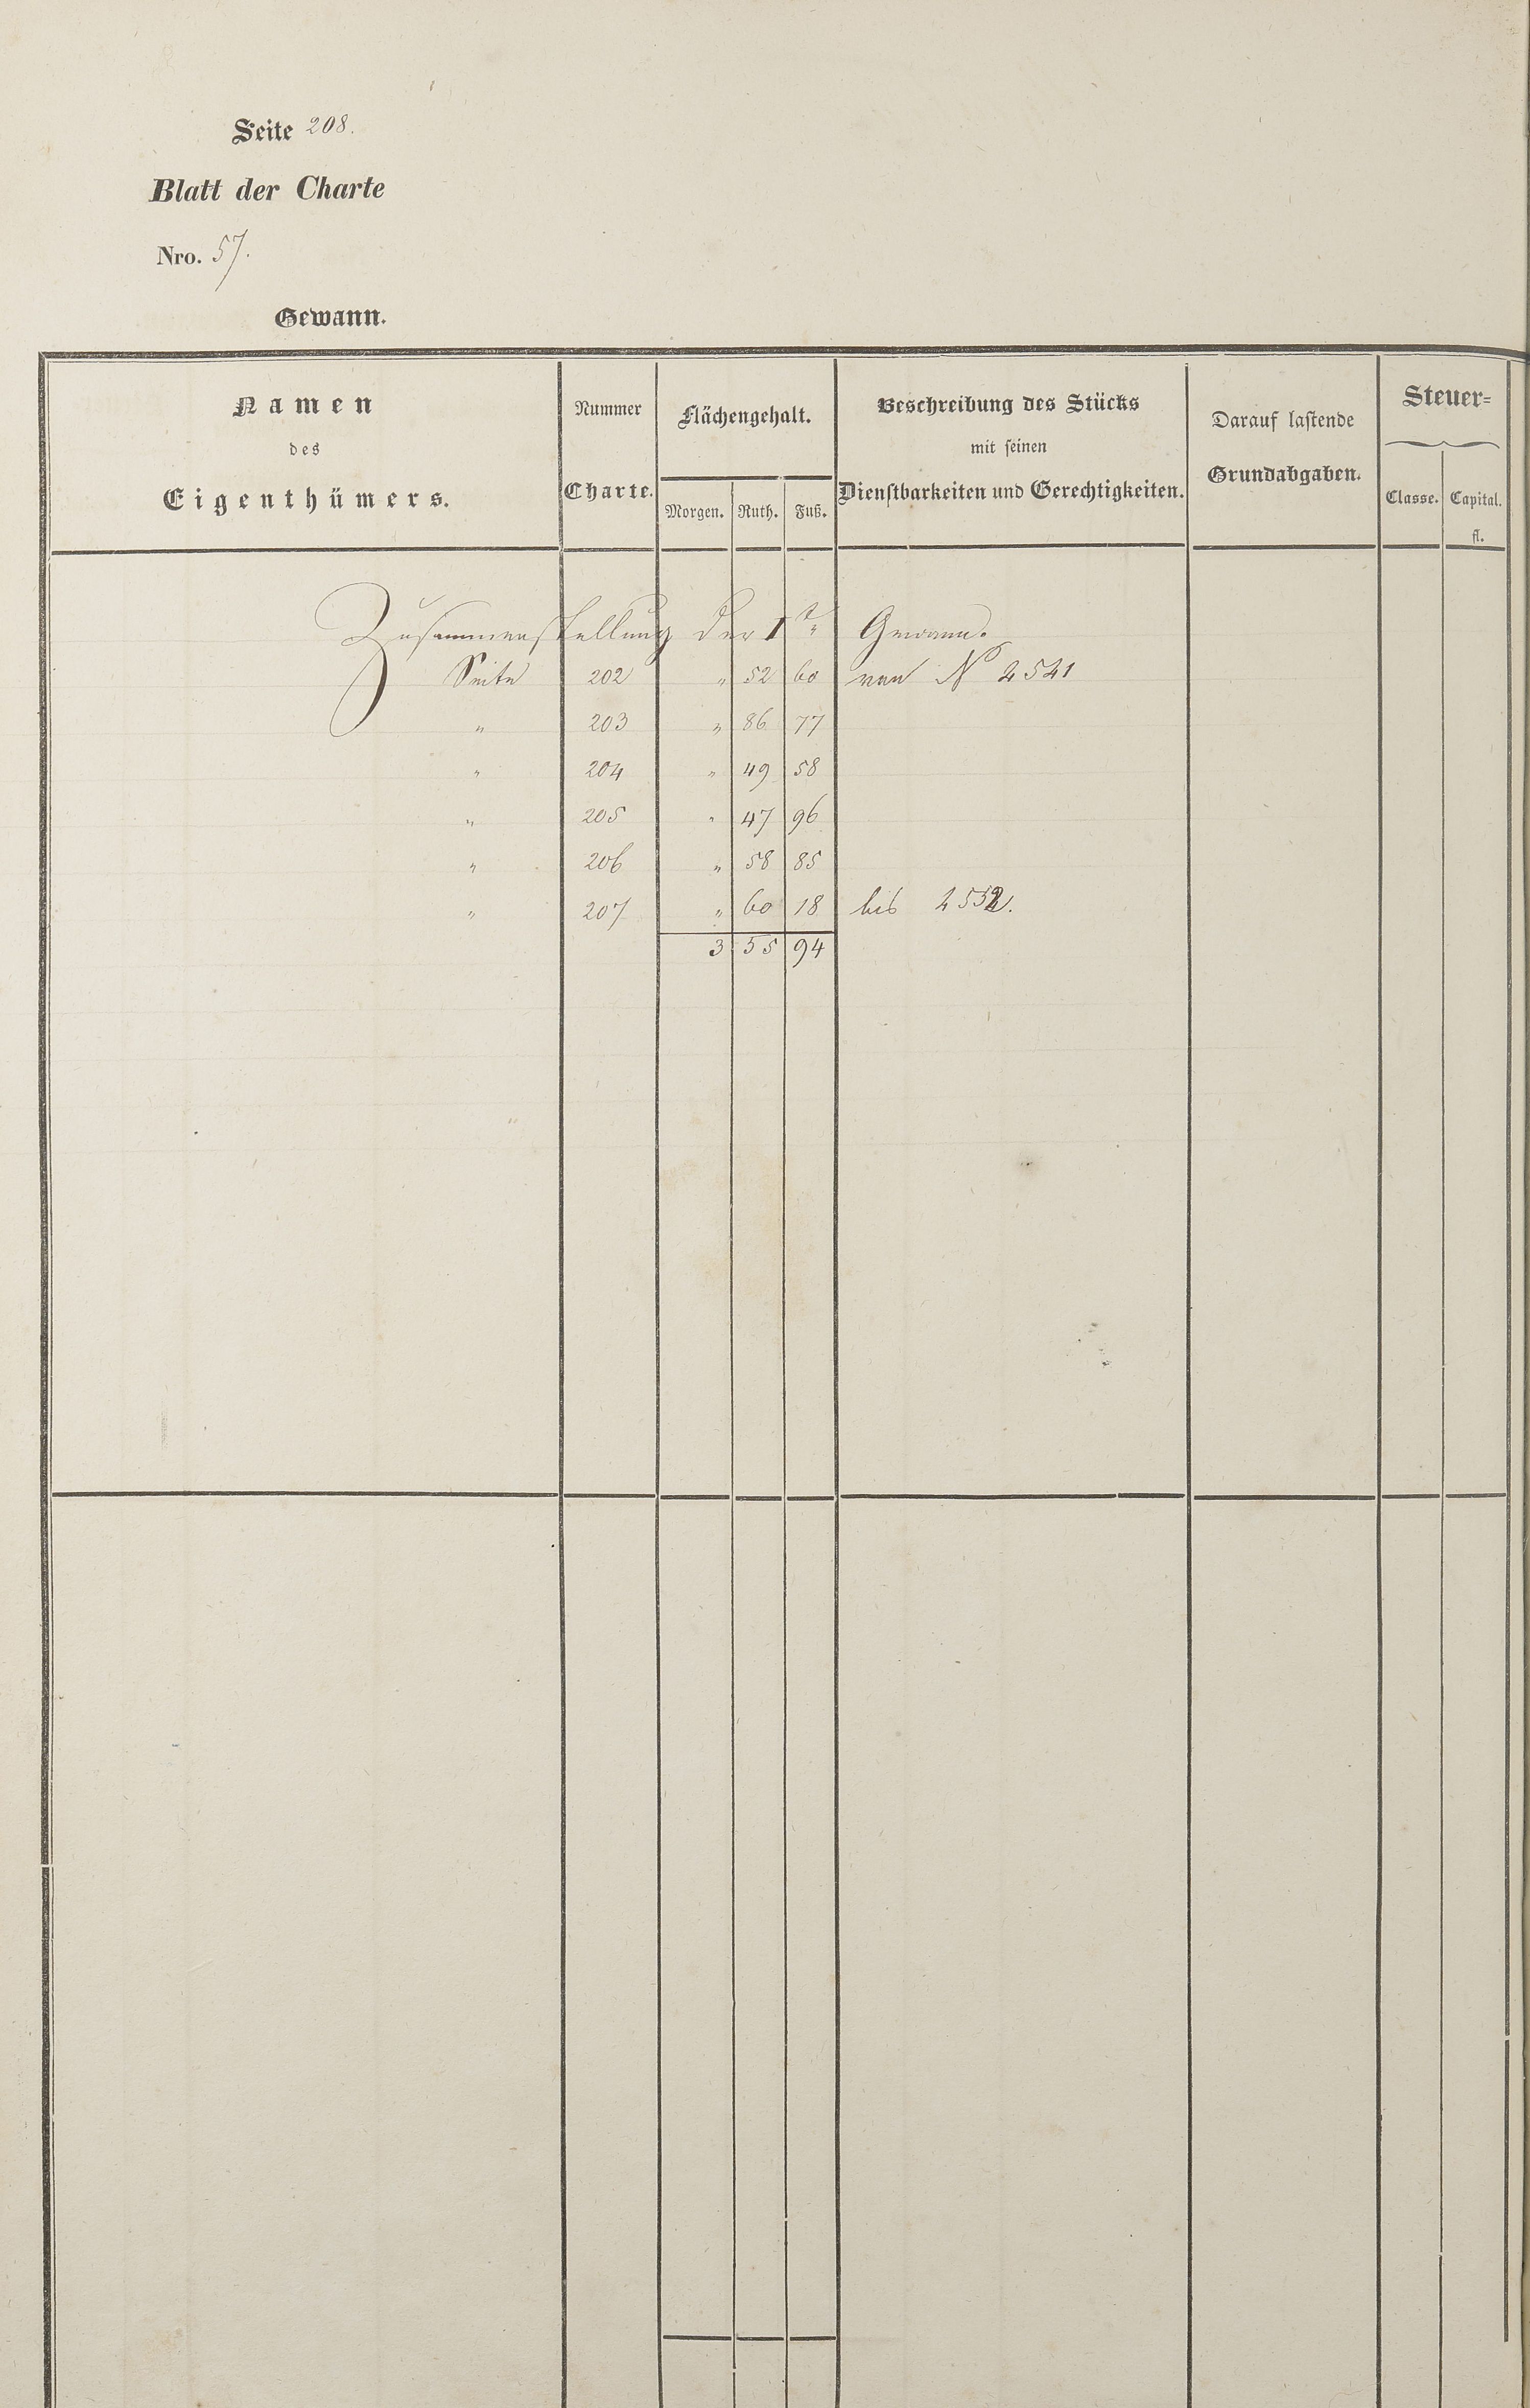 Seite 208.
Blatt der Charte
Nro. 57.
Gewann.
Namen
des
Eigenthümers.
Nummer
Charte.
Flächengehalt.
Morgen. Ruth. Fuß.
Beschreibung des Stücks
mit seinen
Dienstbarkeiten und Gerechtigkeiten.
Darauf lastende
Grundabgaben.
Steuer=
Classe. Capital.
fl.
Zusammenstellung der 1te Gewann.
Seite 202 " 52 60 von No 2541
" 203 " 86 77
" 204 " 49 58
" 205 " 47 96
" 206 " 58 85
" 207 " 60 18 bis
3 55 94